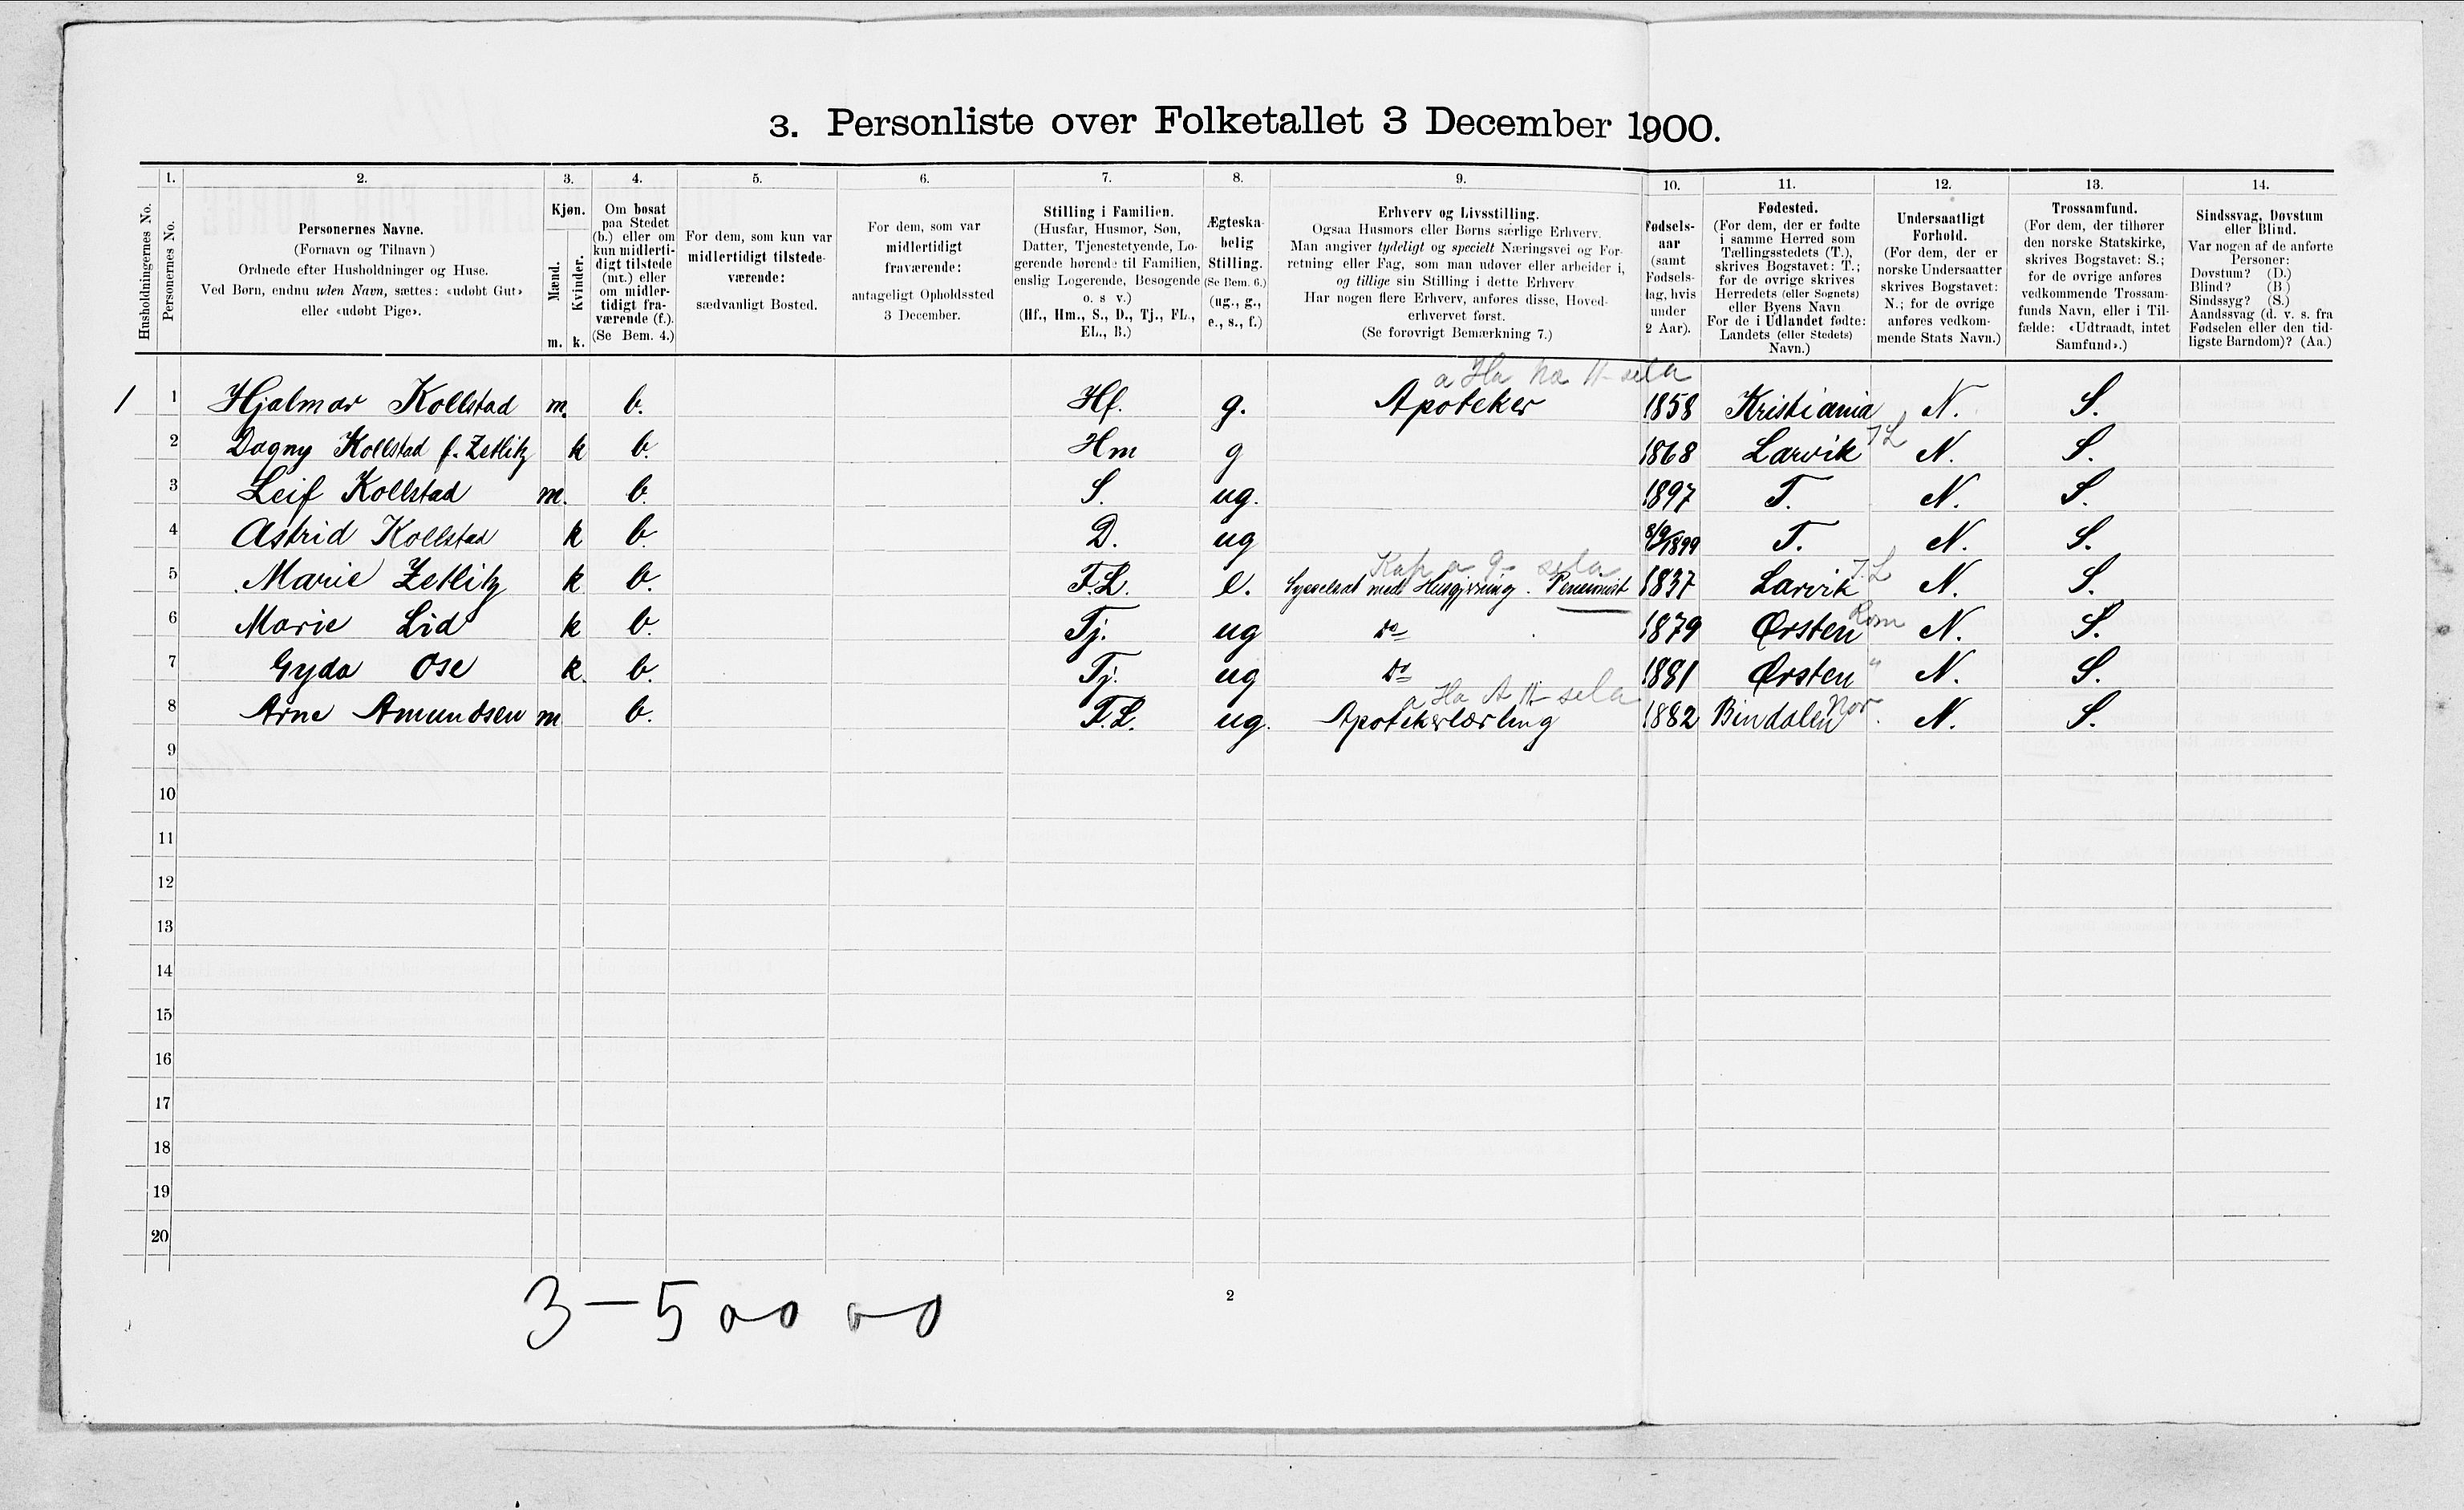 3. Personliste over Folketallet 3 December 1900.
1. 2. 3. 4. 5. 6. 7. 8. 9. 10. 11. 12. 13. 14.
Husholdningernes No.
Personernes No.
Personernes Navne.
(Fornavn og Tilnavn)
Ordnede efter Husholdninger og Huse.
Ved Børn, endnu uden Navn, sættes: «udøbt Gut»
eller «udøbt Pige».
Kjøn.
Mænd.
Kvinder.
m. k.
Om bosat
paa Stedet
(b.) eller om
kun midlerti-
digt tilstede
(mt.) eller
om midler-
tidigt fra-
værende (f.).
(Se Bem. 4.)
For dem, som kun var
midlertidigt tilstede-
værende:
sædvanligt Bosted.
For dem, som var
midlertidigt
fraværende:
antageligt Opholdssted
3 December.
Stilling i Familien.
(Husfar, Husmor, Søn,
Datter, Tjenestetyende, Lo-
gerende hørende til Familien,
enslig Logerende, Besøgende
o. s v.)
(Hf., Hm., S., D., Tj., FL.,
EL., B.)
Ægteska-
belig
Stilling.
(Se Bem. 6.)
(ug., g.,
e., s., f.)
Erhverv og Livsstilling.
Ogsaa Husmors eller Børns særlige Erhverv.
Man angiver tydeligt og specielt Næringsvei og For-
retning eller Fag, som man udøver eller arbeider i,
og tillige sin Stilling i dette Erhverv
Har nogen flere Erhverv, anføres disse, Hoved-
erhvervet først.
(Se forøvrigt Bemærkning 7.)
Fødsels-
aar
(samt
Fødsels-
dag, hvis
under
2 Aar).
Fødested.
(For dem, der er fødte
i samme Herred som
Tællingsstedets (T.),
skrives Bogstavet: T.;
for de øvrige skrives
Herredets (eller Sognets)
eller Byens Navn
For de i Udlandet fødte:
Landets (eller Stedets)
Navn.)
Undersaatligt
Forhold.
(For dem, der er
norske Undersaatter
skrives Bogstavet:
N.; for de øvrige
anføres vedkom-
mende Stats Navn.)
Trossamfund.
(For dem, der tilhører
den norske Statskirke,
skrives Bogstavet: S.;
for de øvrige anføres
vedkommende Trossam-
funds Navn, eller i Til-
fælde: «Udtraadt, intet
Samfund».)
Sindssvag, Døvstum
eller Blind.
Var nogen af de anførte
Personer:
Døvstum? (D.)
Blind? (B)
Sindssyg? (S.)
Aandssvag (d. v. s. fra
Fødselen eller den tid-
ligste Barndom)? (Aa.)
1 1 Hjalmar Kollstad m. b. Hf. g. Apoteker 1858 Kristiania N. S.
2 Dagny Kollstad f. Zetlitz k b. Hm g 1868 Larvik JL N. S.
3 Leif Kollstad m. b. S. ug. 1897 T. N. S.
4 Astrid Kollstad k b. D. ug 8/9 1899 T. N. S.
5 Marie Zetlitz k b. F.L. e. Sysselsat med Husgjerning. Pensionist 1837 Larvik JL N. S.
6 Marie Lid k b. Tj. ug do 1879 Ørsten Rom N. S.
7 Gyda Ose k. b. Tj. ug do 1881 Ørsten " N. S.
8 Arne Amundsen m b. F.L. ug. Apotekerlærling 1882 Bindalen Nor. N. S.
9
10
11
12
13
14
15
16
17
18
19
20
3-5 00 00
2